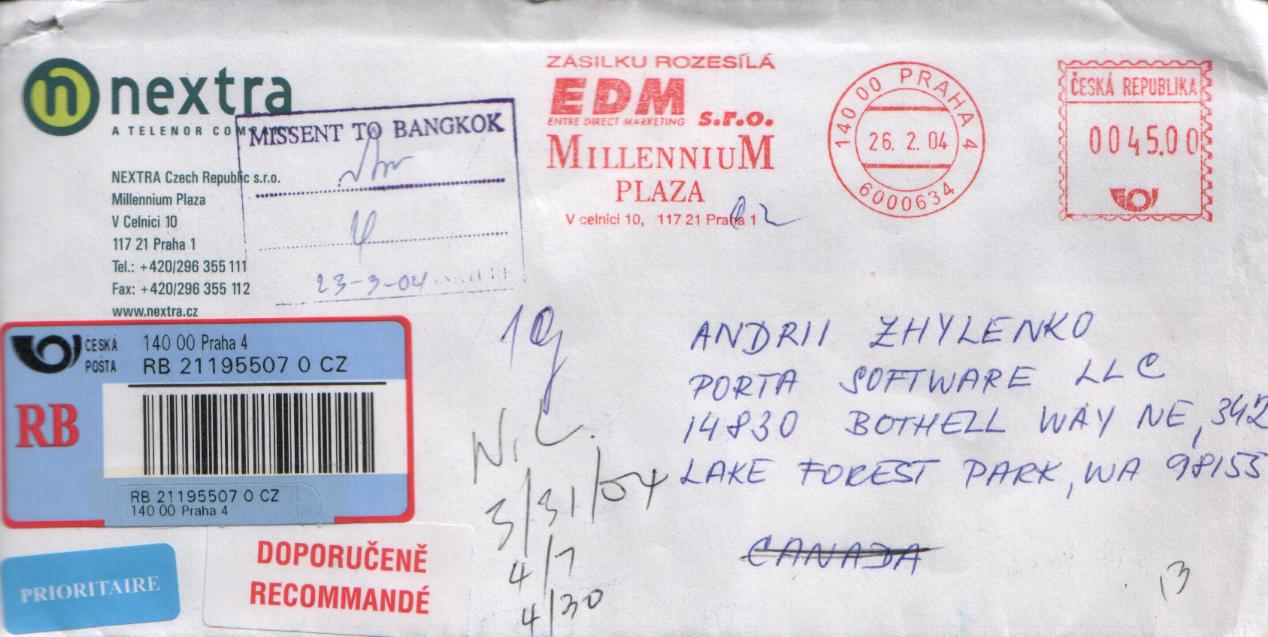 nextra
A TELENOR COM
NEXTRA Czech Republic s.r.o.
Millennium Plaza
V Celnici 10
117 21 Praha 1
Tel.: +420/296 355 111
Fax: +420/296 355 112
www.nextra.cz
MISSENT TO BANGKOK
23-3-04
ZÁSILKU ROZESÍLÁ
EDM s.r.o.
ENTRE DIRECT MARKETING
MILLENNIUM
PLAZA
V celnici 10, 117 21 Praha 1
140 00 PRAHA 4
26. 2. 04
6000634
ČESKÁ REPUBLIKA
0045.00
ČESKÁ POŠTA
140 00 Praha 4
RB 21195507 0 CZ
RB
RB 21195507 0 CZ
140 00 Praha 4
PRIORITAIRE
DOPORUČENĚ
RECOMMANDÉ
N.L.
3/31/04
4/7
4/30
ANDRII ZHYLENKO
PORTA SOFTWARE LLC
14830 BOTHELL WAY NE, 342
LAKE FOREST PARK, WA 98155
CANADA
13